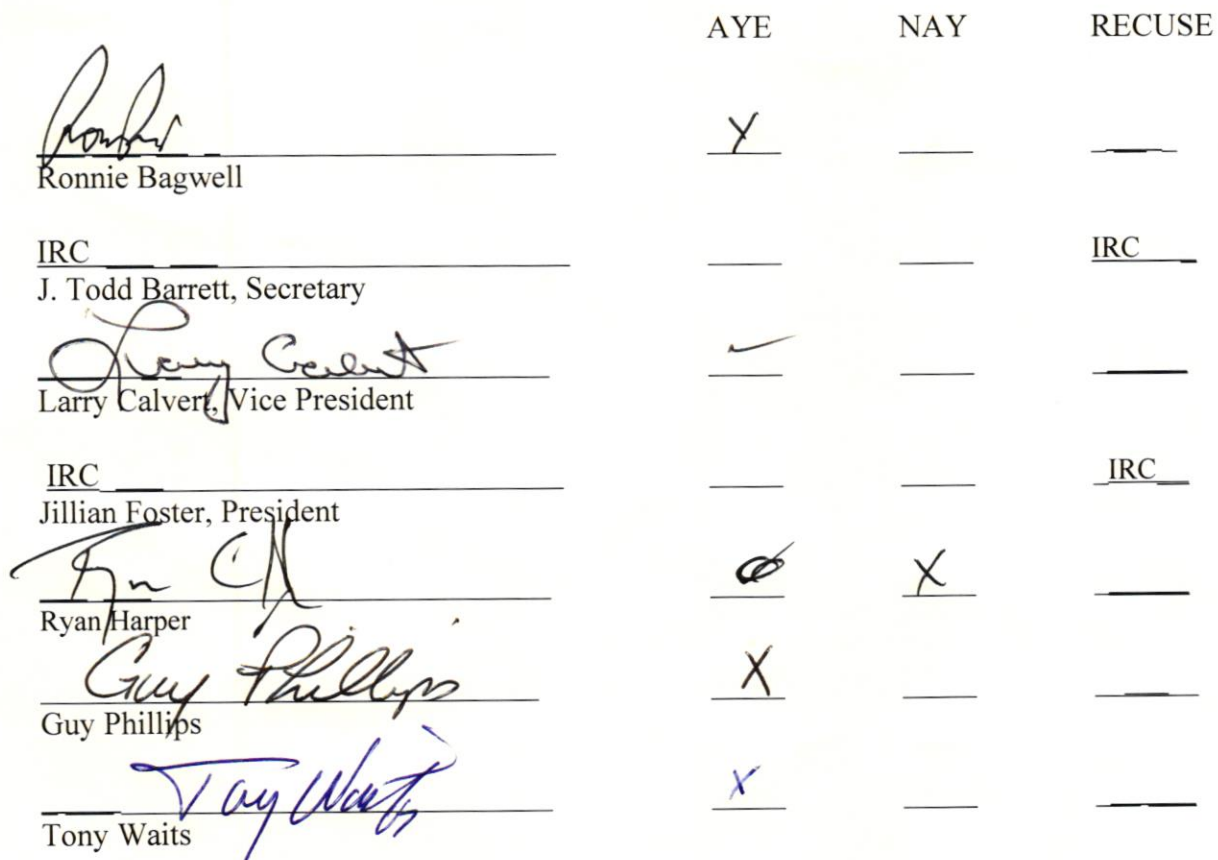 AYE NAY RECUSE
X
Ronnie Bagwell
IRC IRC
J. Todd Barrett, Secretary
Larry Calvert ✓
Larry Calvert, Vice President
IRC IRC
Jillian Foster, President
X
Ryan Harper
Guy Phillips X
Guy Phillips
Tony Waits X
Tony Waits